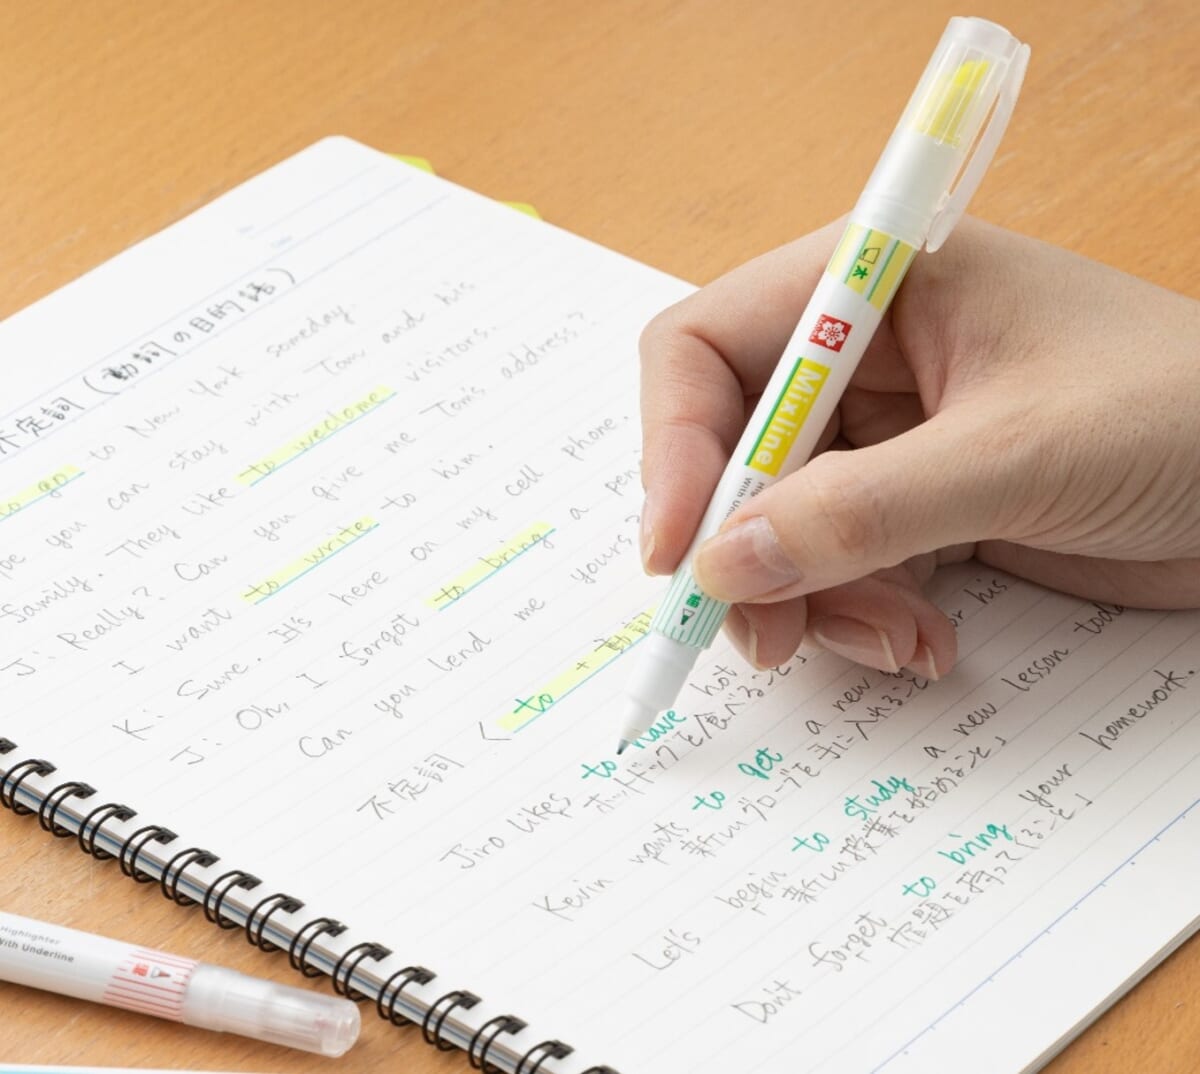 不定詞(動詞の目的語)
to go to New York someday.
pe you can stay with Tom and his
family. They like to weclome visitors.
J: Really? Can you give me Tom's address?
I want to write to him.
K: Sure. It's here on my cell phone.
J: Oh, I forgot to bring a pen
Can you lend me yours?
不定詞 < to + 動詞
Jiro likes to have hot
ホットドックを食べること」
Kevin wants to get a new
新しいグローブを手に入れること」
or his
Let's begin to study a new lesson toda
「新しい授業を始めること」
Don't forget to bring your homework.
宿題を持ってくること」
太
Mixline
細
Highlighter
With Underline
細